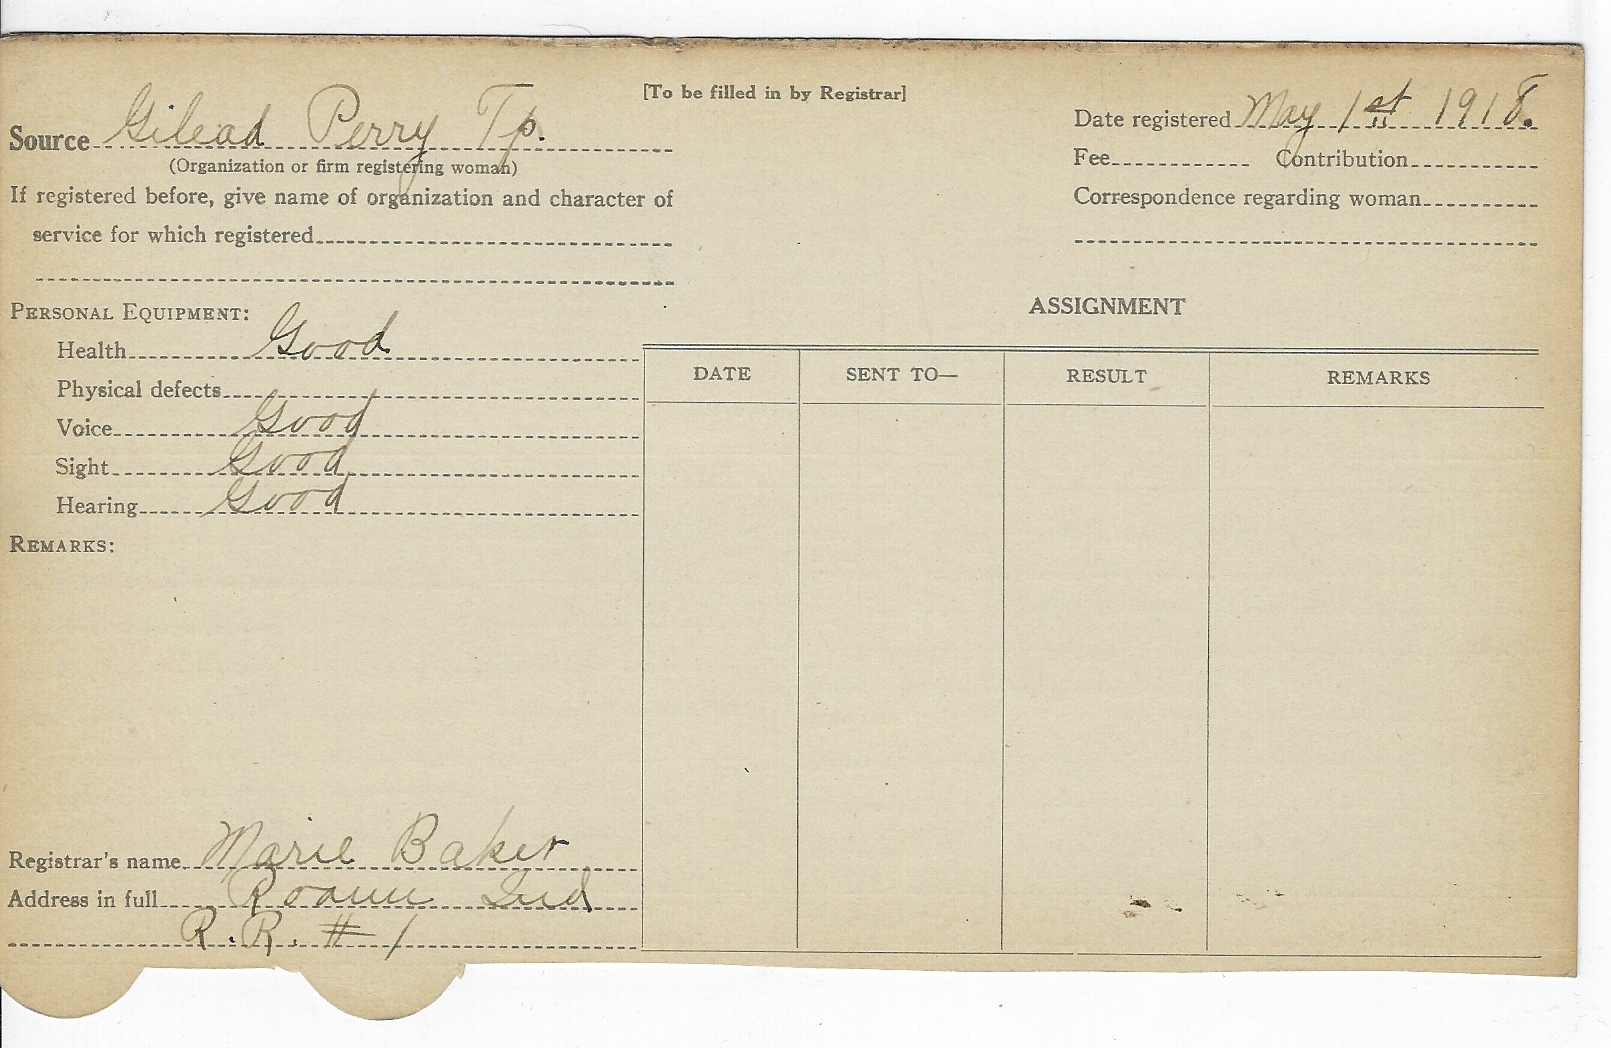 [To be filled in by Registrar]
Source Gilead Perry Tp.
(Organization or firm registering woman)
If registered before, give name of organization and character of
service for which registered
Date registered May 1st 1918.
Fee Contribution
Correspondence regarding woman
PERSONAL EQUIPMENT:
Health Good
Physical defects
Voice Good
Sight Good
Hearing Good
REMARKS:
ASSIGNMENT
DATE SENT TO— RESULT REMARKS
Registrar's name Marie Baker
Address in full Roann Ind
R.R. # 1